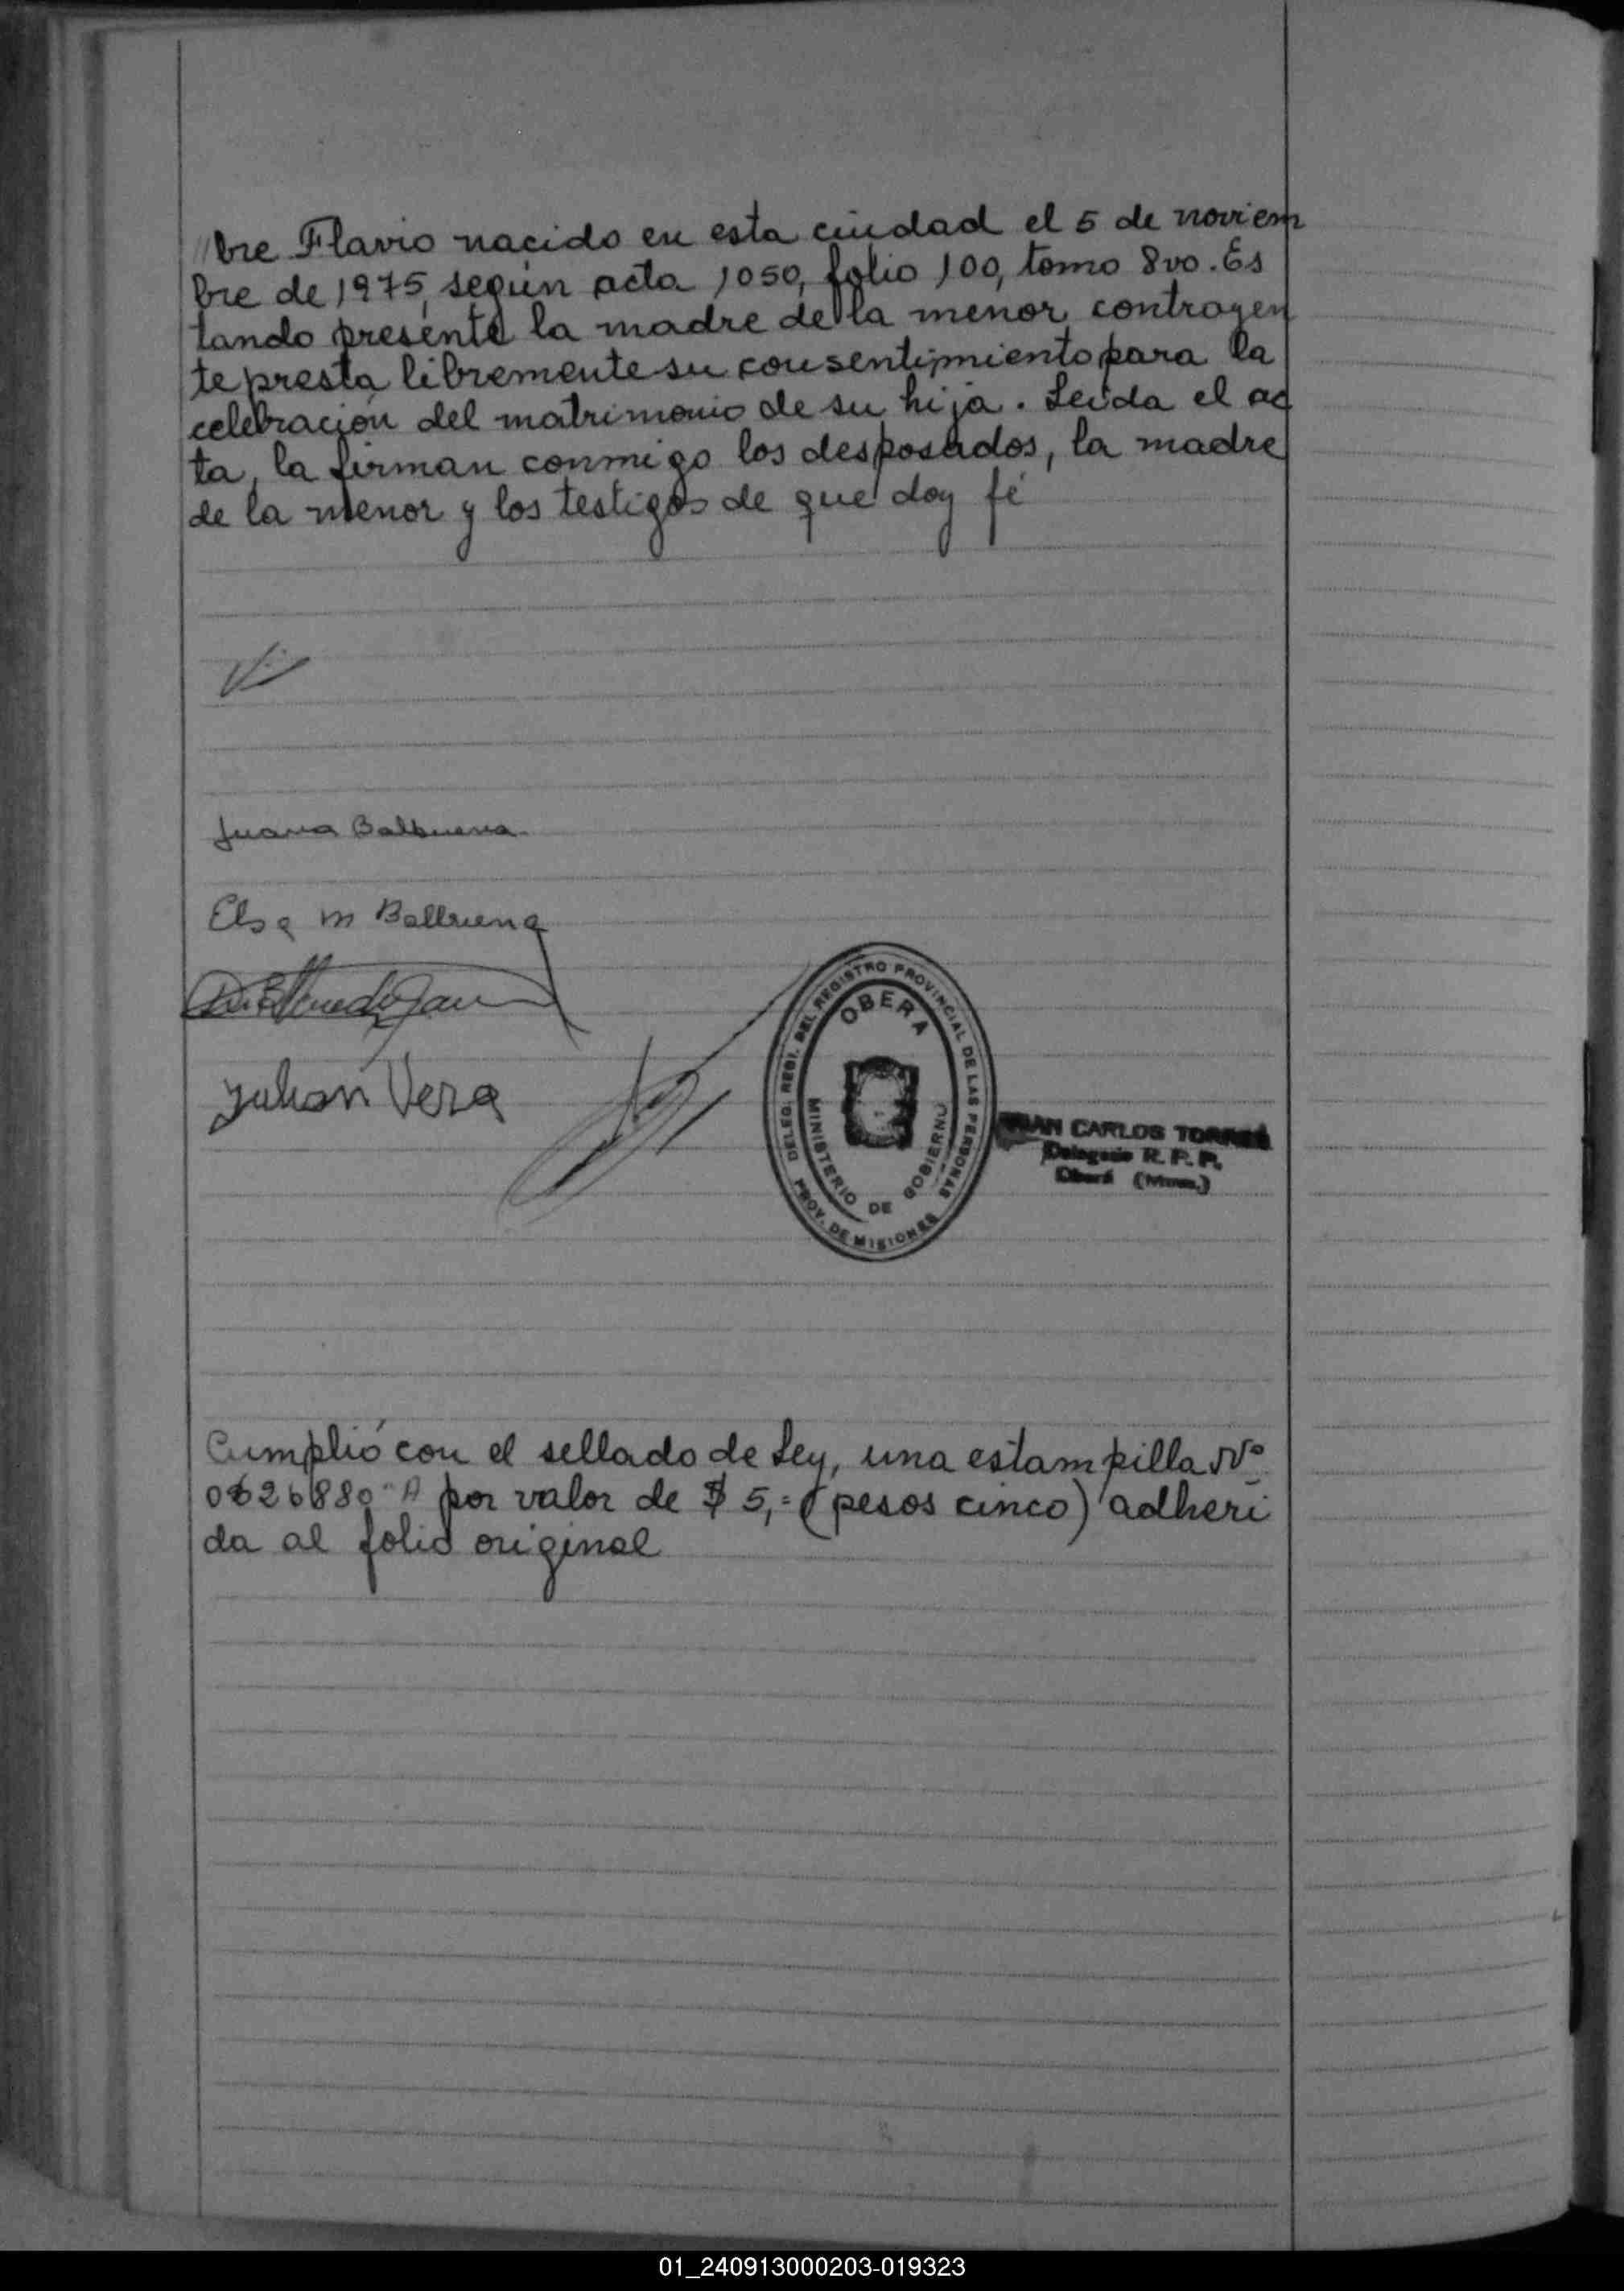 //bre Flavio nacido en esta ciudad el 5 de noviem
bre de 1975, según acta 1050, folio 100, tomo 8vo. Es
tando presente la madre de la menor contrayen
te presta libremente su consentimiento para la
celebración del matrimonio de su hija. Leida el ac
ta, la firman conmigo los desposados, la madre
de la menor y los testigos de que doy fé
Juana Balbuena
Elsa M Balbuena
Julian Vera
DELEG. REGI. DEL REGISTRO PROVINCIAL DE LAS PERSONAS
OBERA
MINISTERIO DE GOBIERNO
PROV. DE MISIONES
JUAN CARLOS TORRES
Delegado R. P. P.
Oberá (Mnes.)
Cumplió con el sellado de Ley, una estampilla Nº
0626880-A por valor de $ 5,= (pesos cinco) adheri
da al folio original
01_240913000203-019323